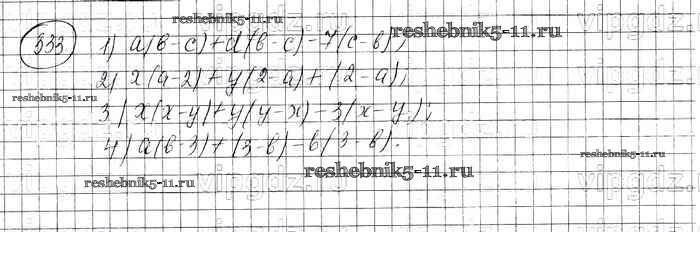 reshebnik5-11.ru
333 1) a(b-c)+d(b-c)-7(c-b);
reshebnik5-11.ru
2) x(a-2)+y(2-a)+(2-a);
reshebnik5-11.ru
3) x(x-y)+y(y-x)-3(x-y);
4) a(b-3)+(3-b)-6(3-b).
reshebnik5-11.ru
reshebnik5-11.ru
reshebnik5-11.ru